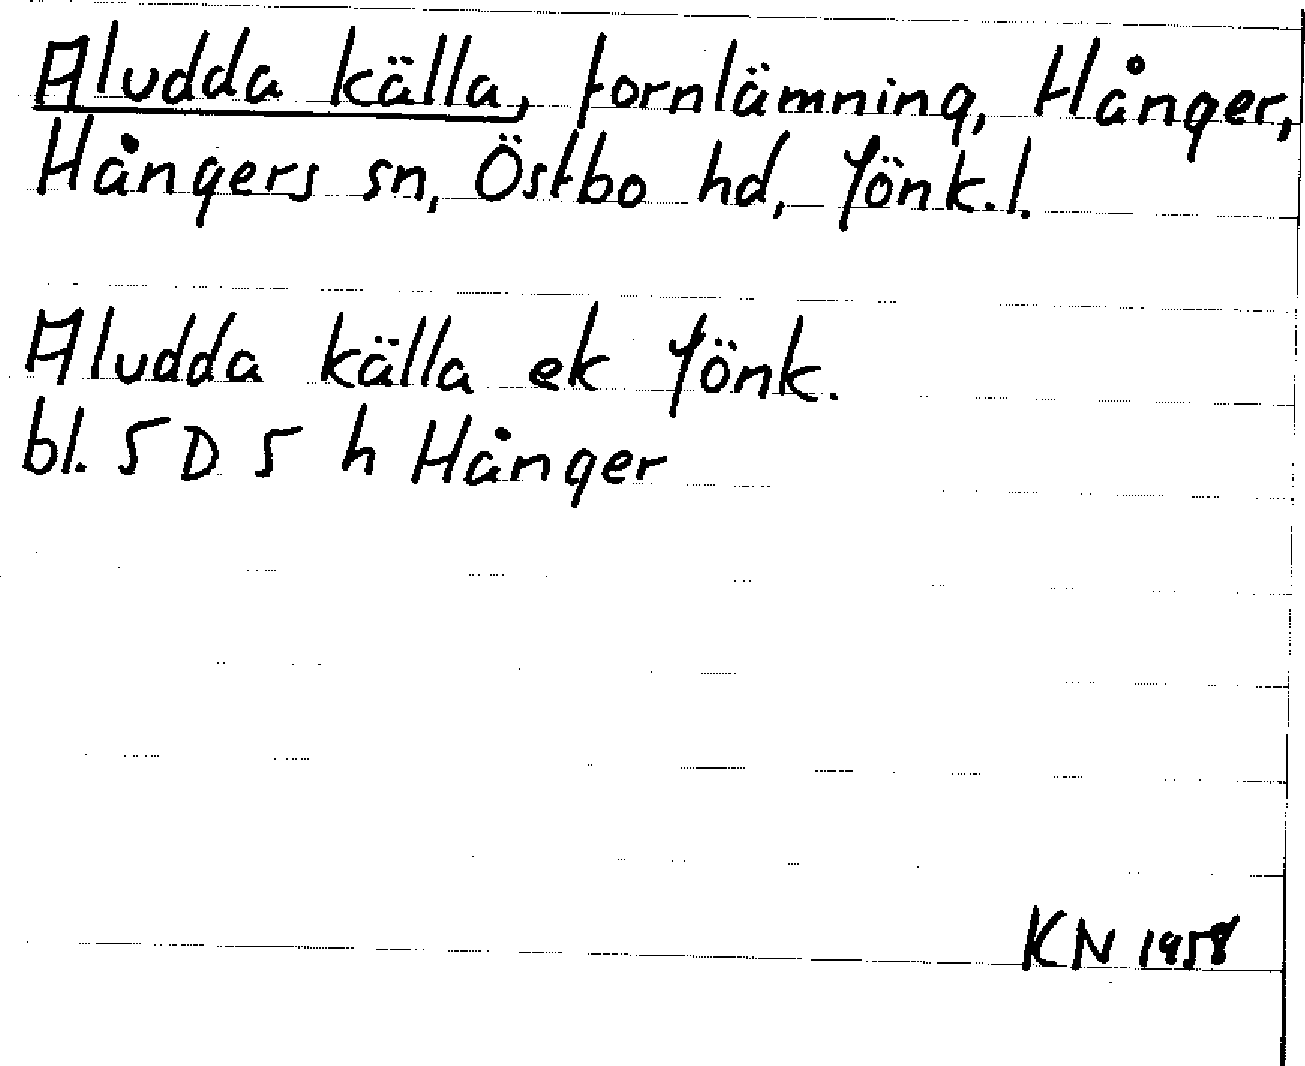 Aludda källa, fornlämning, Hånger,
Hångers sn, Östbo hd, Jönk.l.
Aludda källa ek Jönk.
bl. 5 D 5 h Hånger
KN 1958